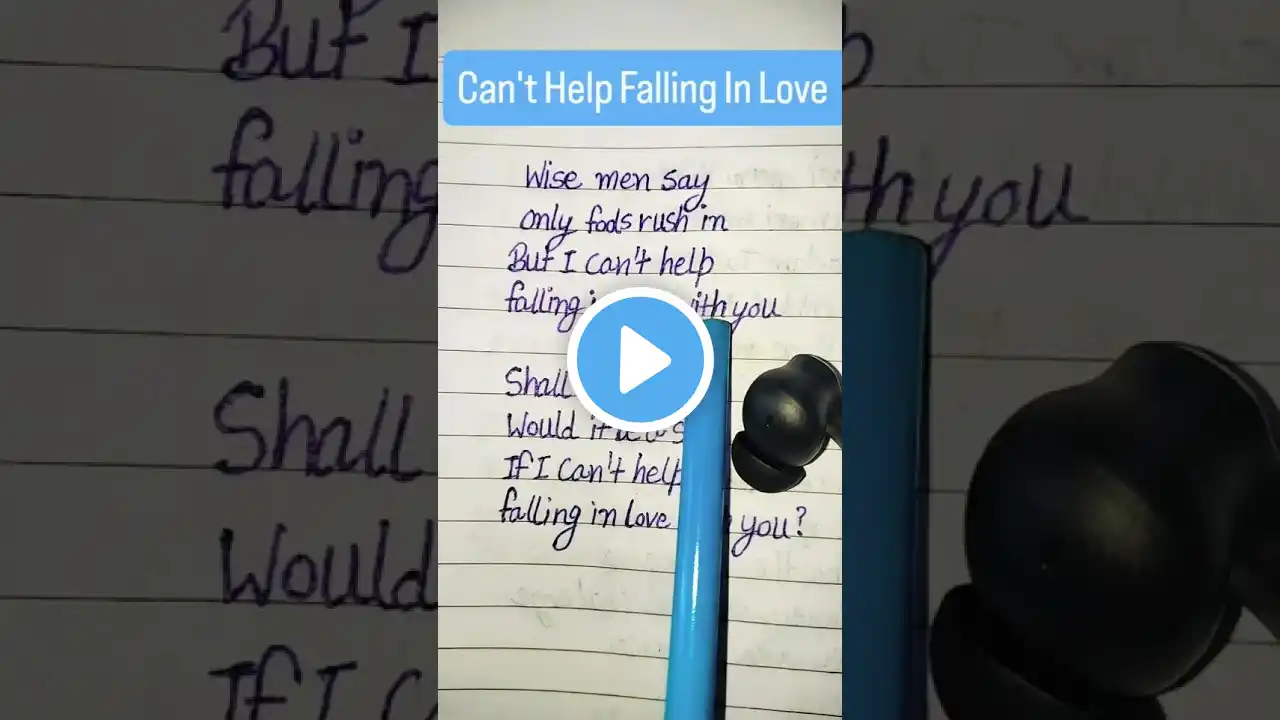 Can't Help Falling In Love
Wise men say
only fools rush in
But I can't help
falling you
Shall
Would it
If I can't help
falling in love you?